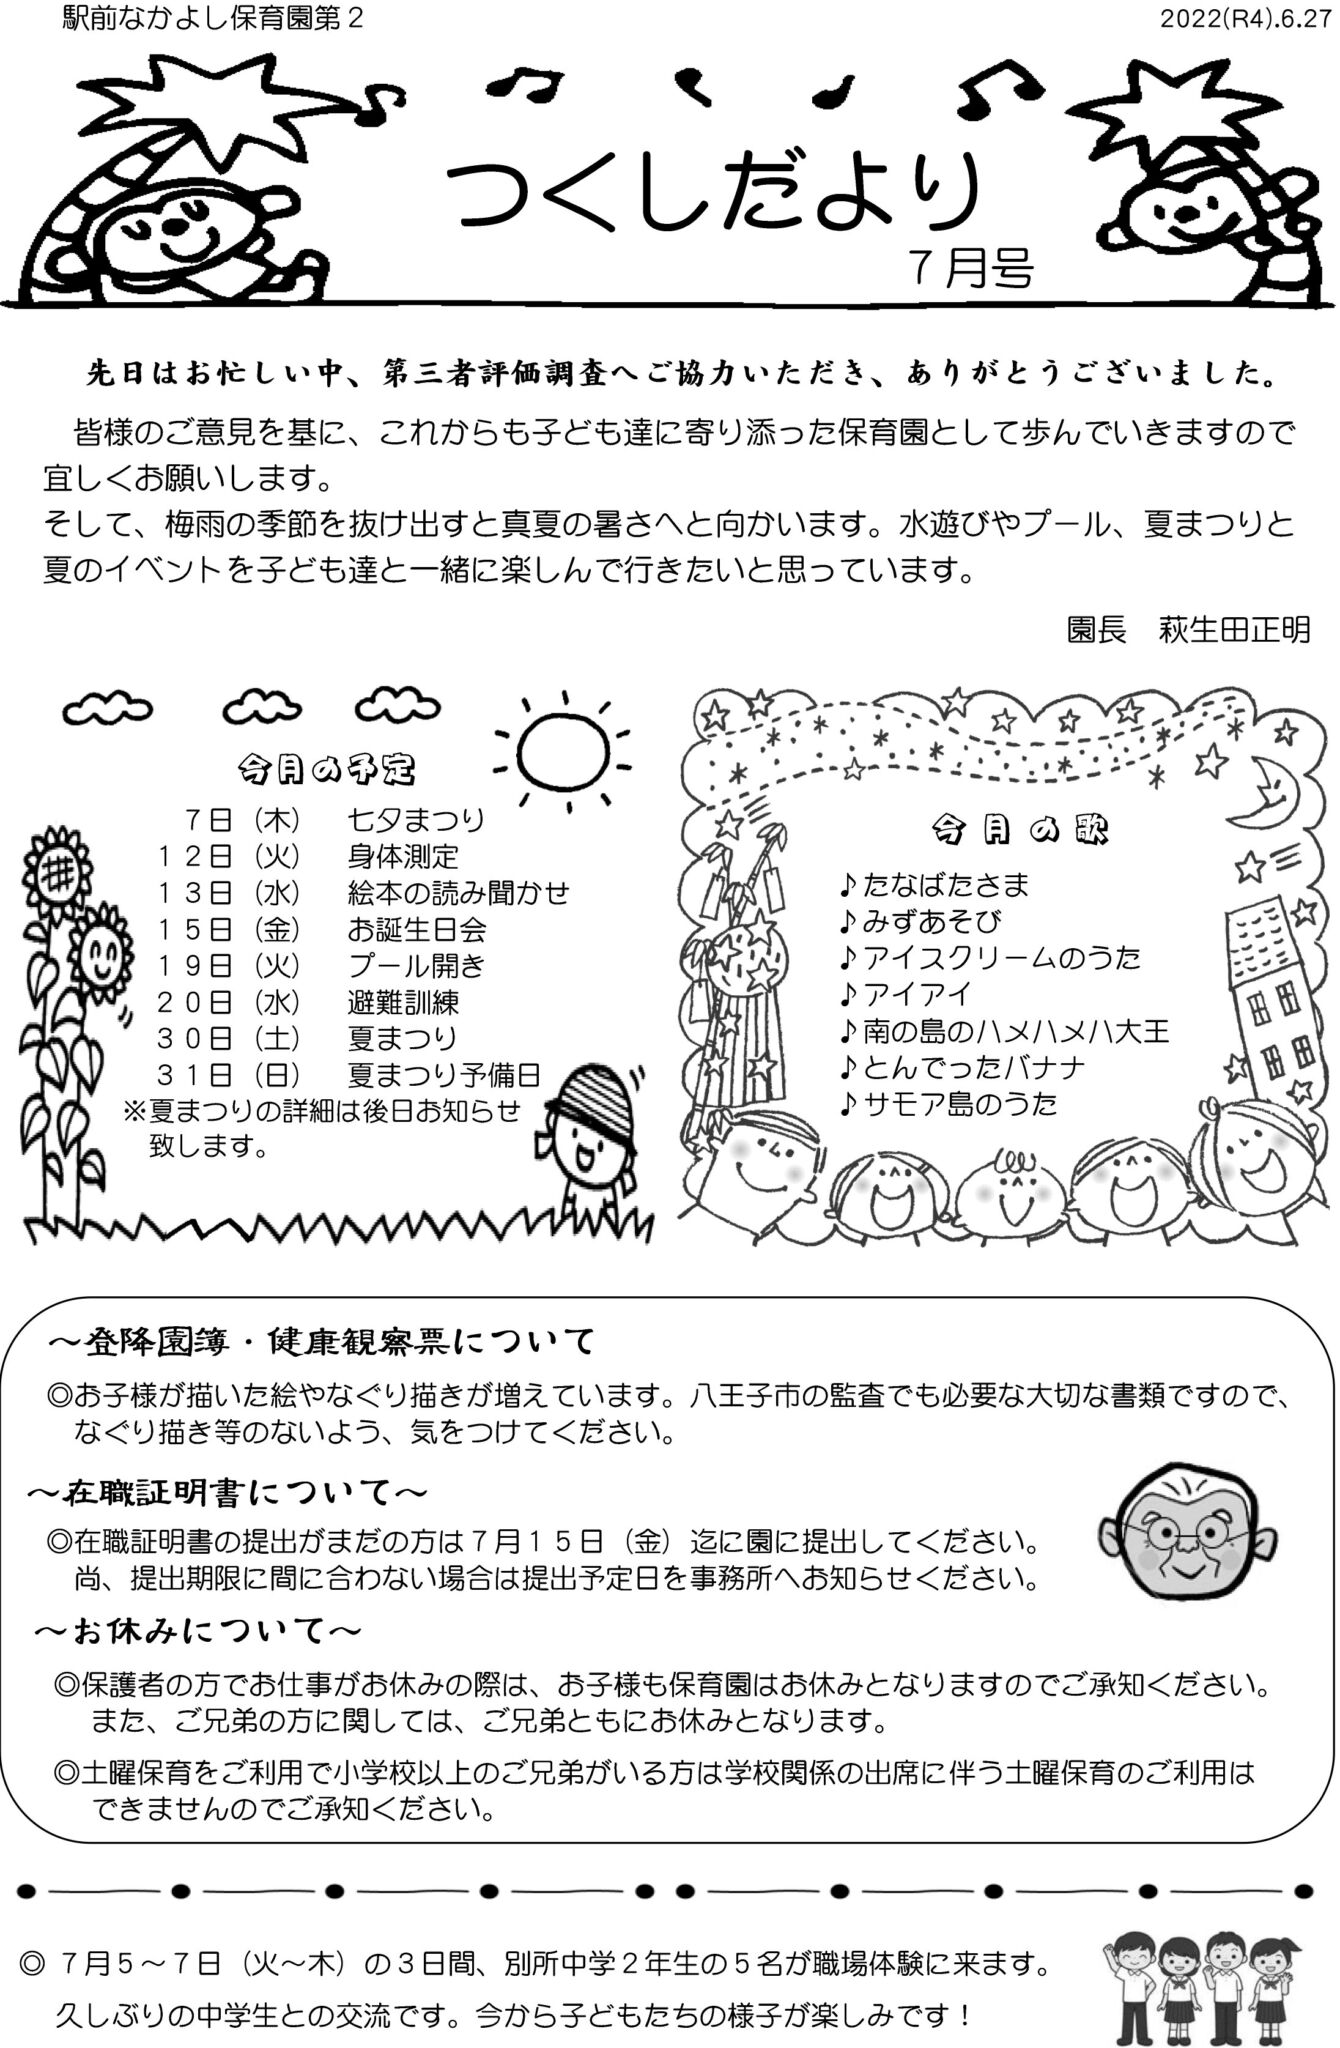 駅前なかよし保育園第２
2022(R4).6.27
つくしだより
７月号
先日はお忙しい中、第三者評価調査へご協力いただき、ありがとうございました。
皆様のご意見を基に、これからも子ども達に寄り添った保育園として歩んでいきますので
宜しくお願いします。
そして、梅雨の季節を抜け出すと真夏の暑さへと向かいます。水遊びやプール、夏まつりと
夏のイベントを子ども達と一緒に楽しんで行きたいと思っています。
園長　萩生田正明
今月の予定
７日（木）　七夕まつり
１２日（火）　身体測定
１３日（水）　絵本の読み聞かせ
１５日（金）　お誕生日会
１９日（火）　プール開き
２０日（水）　避難訓練
３０日（土）　夏まつり
３１日（日）　夏まつり予備日
※夏まつりの詳細は後日お知らせ
致します。
今月の歌
♪たなばたさま
♪みずあそび
♪アイスクリームのうた
♪アイアイ
♪南の島のハメハメハ大王
♪とんでったバナナ
♪サモア島のうた
～登降園簿・健康観察票について
◎お子様が描いた絵やなぐり描きが増えています。八王子市の監査でも必要な大切な書類ですので、
なぐり描き等のないよう、気をつけてください。
～在職証明書について～
◎在職証明書の提出がまだの方は７月１５日（金）迄に園に提出してください。
尚、提出期限に間に合わない場合は提出予定日を事務所へお知らせください。
～お休みについて～
◎保護者の方でお仕事がお休みの際は、お子様も保育園はお休みとなりますのでご承知ください。
また、ご兄弟の方に関しては、ご兄弟ともにお休みとなります。
◎土曜保育をご利用で小学校以上のご兄弟がいる方は学校関係の出席に伴う土曜保育のご利用は
できませんのでご承知ください。
◎ ７月５～７日（火～木）の３日間、別所中学２年生の５名が職場体験に来ます。
久しぶりの中学生との交流です。今から子どもたちの様子が楽しみです！